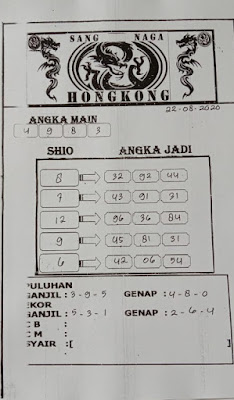 SANG NAGA
HONGKONG
22-08-2020
ANGKA MAIN
4 9 8 3
SHIO ANGKA JADI
8 32 92 44
7 43 91 21
12 96 36 84
9 45 81 31
6 42 06 54
PULUHAN
GANJIL : 3-9-5 GENAP : 4-8-0
EKOR
GANJIL : 5-3-1 GENAP : 2-6-4
C B :
C M :
SYAIR :[
]